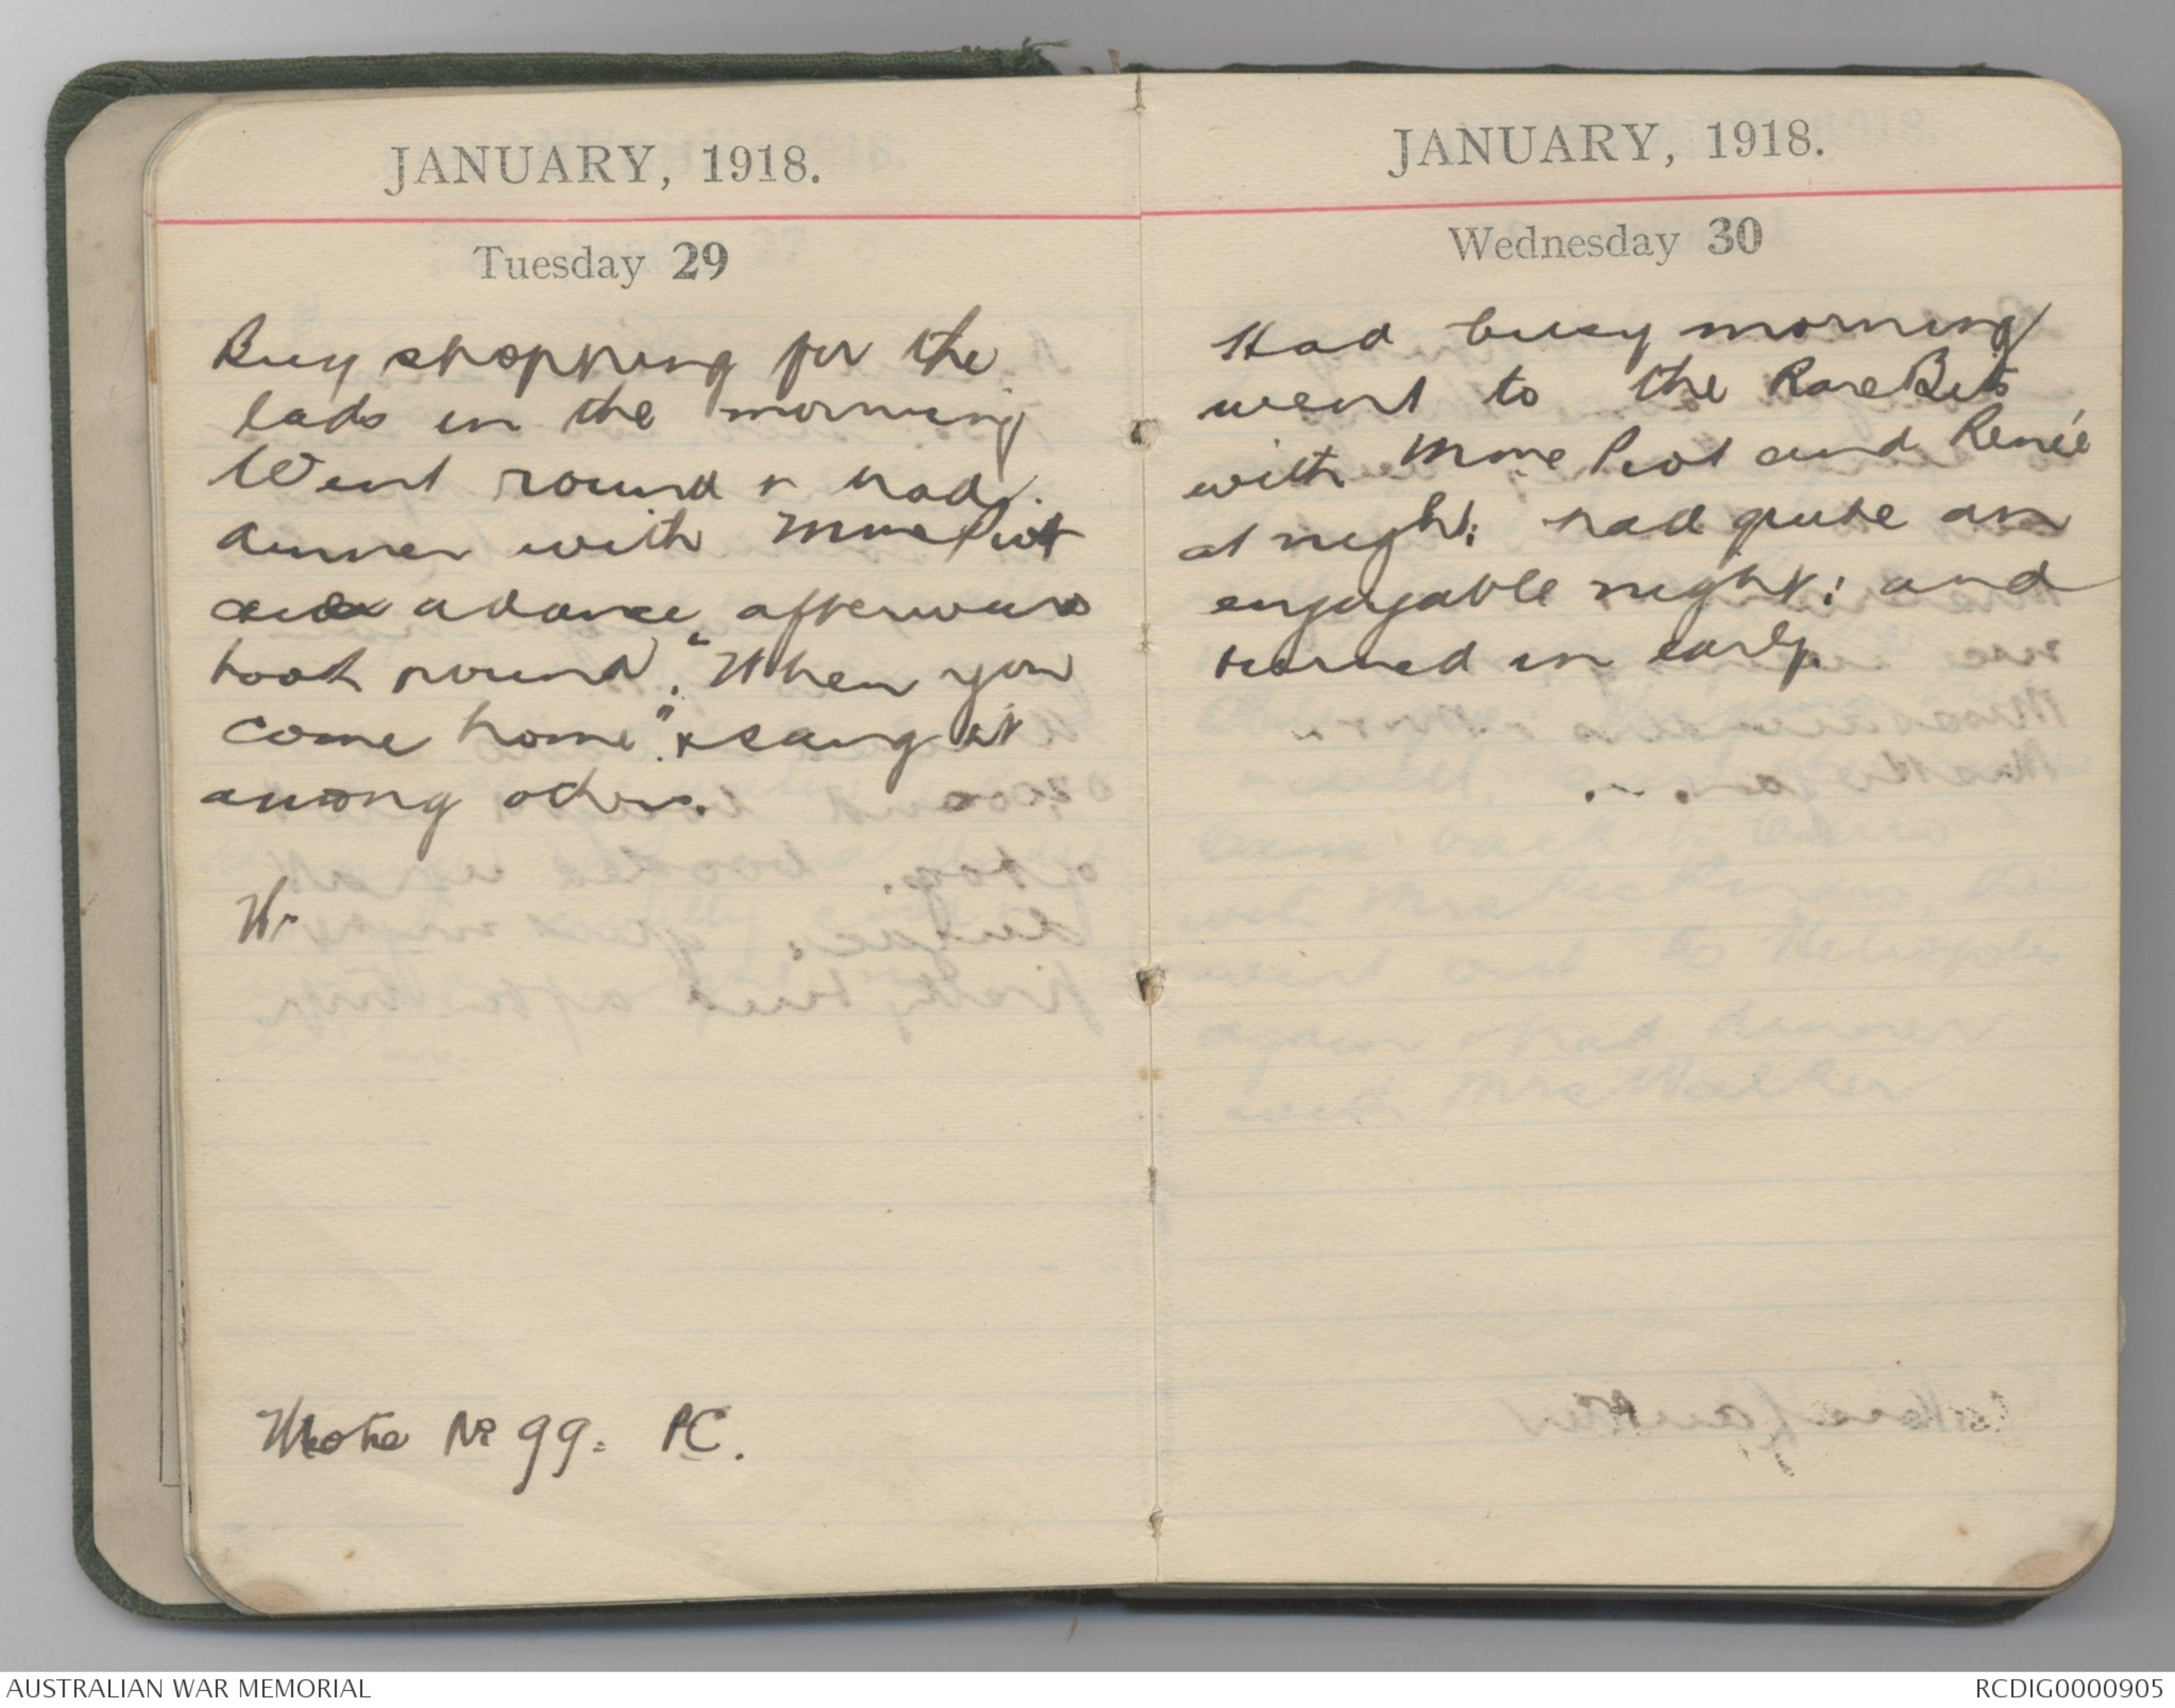 JANUARY, 1918.
Tuesday 29
Busy shopping for the
lads in the morning
Went round & had
dinner with Mme Piot
and a dance afterwards
took round "When you
come home" & sang it
among others.
Wr
Wrote No 99. PC.
JANUARY, 1918.
Wednesday 30
Had busy morning
went to the Rare Bits
with Mme Piot and Renée
at night; had quite an
enjoyable night; and
turned in early.
AUSTRALIAN WAR MEMORIAL
RCDIG0000905